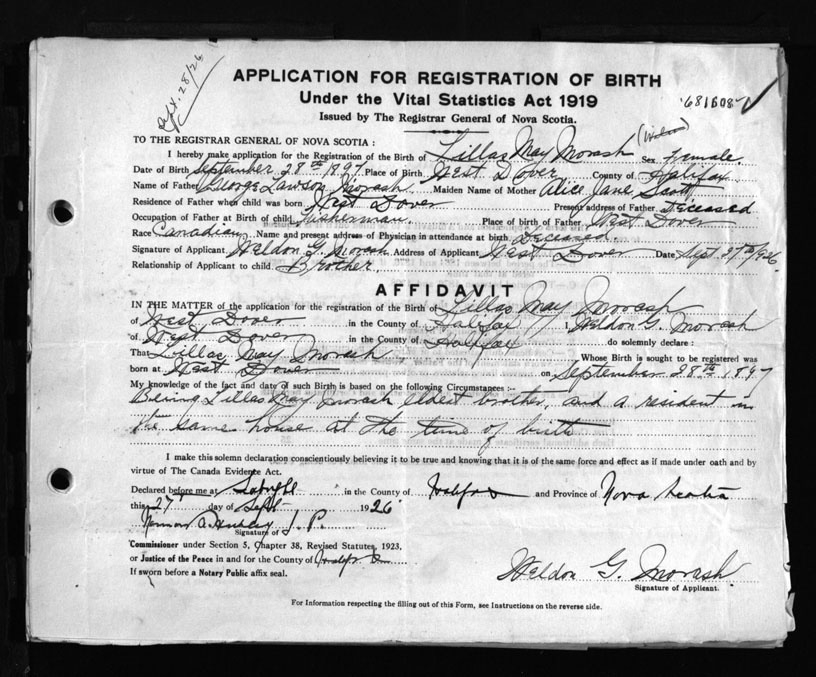 Sept. 28/26
APPLICATION FOR REGISTRATION OF BIRTH
Under the Vital Statistics Act 1919
Issued by The Registrar General of Nova Scotia.
TO THE REGISTRAR GENERAL OF NOVA SCOTIA:
I hereby make application for the Registration of the Birth of Lillas May Morash Sex Female
Date of Birth September 28th 1897 Place of Birth West Dover County of Halifax
Name of Father George Lawson Morash Maiden Name of Mother Alice Jane Scott
Residence of Father when child was born West Dover Present address of Father Deceased
Occupation of Father at Birth of child Fisherman. Place of birth of Father West Dover
Race Canadian Name and present address of Physician in attendance at birth Deceased.
Signature of Applicant Weldon G. Morash Address of Applicant West Dover Date Sept 27th/926
Relationship of Applicant to child Brother.
AFFIDAVIT
IN THE MATTER of the application for the registration of the Birth of Lillas May Morash
of West Dover in the County of Halifax I, Weldon G. Morash
of West Dover in the County of Halifax do solemnly declare:
That Lillas May Morash Whose Birth is sought to be registered was
born at West Dover on September 28th 1897
My knowledge of the fact and date of such Birth is based on the following Circumstances:-
Being Lillas May Morash eldest brother, and a resident in
the same house at the time of birth
I make this solemn declaration conscientiously believing it to be true and knowing that it is of the same force and effect as if made under oath and by
virtue of The Canada Evidence Act.
Declared before me at in the County of Halifax and Province of Nova Scotia
this 27 day of Sept 1926
J. P.
Signature of
Commissioner under Section 5, Chapter 38, Revised Statutes, 1923,
or Justice of the Peace in and for the County of Halifax
If sworn before a Notary Public affix seal.
Weldon G. Morash
Signature of Applicant.
For Information respecting the filling out of this Form, see Instructions on the reverse side.